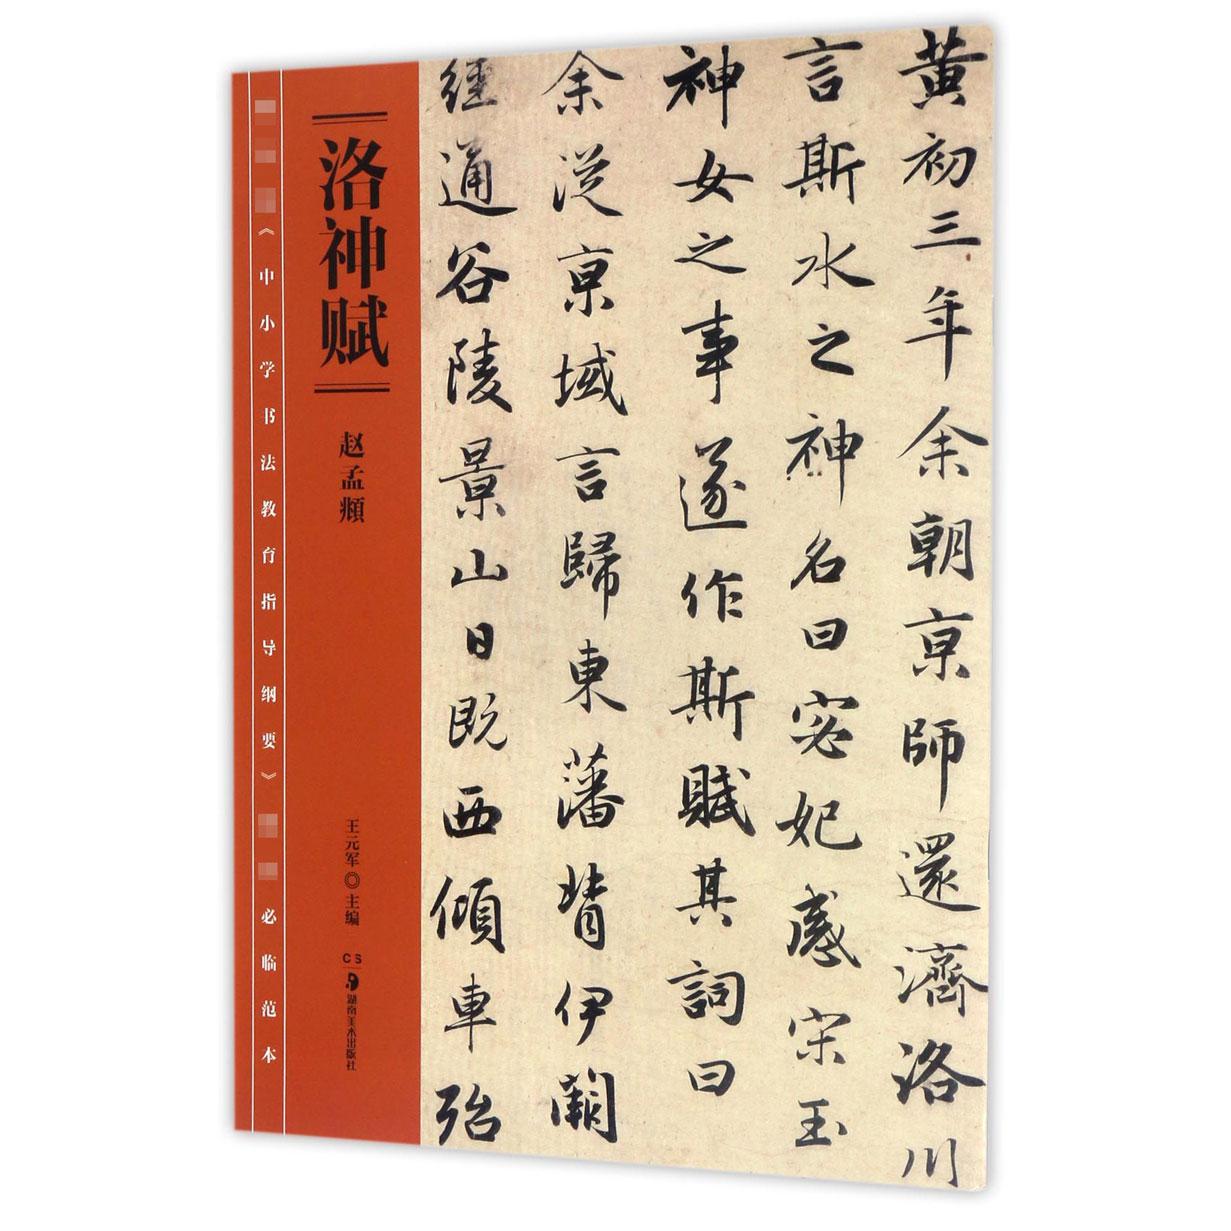 黄初三年余朝亰師還濟洛川
言斯水之神名曰宓妃感宋玉
神女之事遂作斯賦其詞曰
余從亰域言歸東藩背伊闕
經通谷陵景山日既西傾車殆
洛神赋
赵孟頫
王元军◎主编
CS
湖南美术出版社
《中小学书法教育指导纲要》必临范本